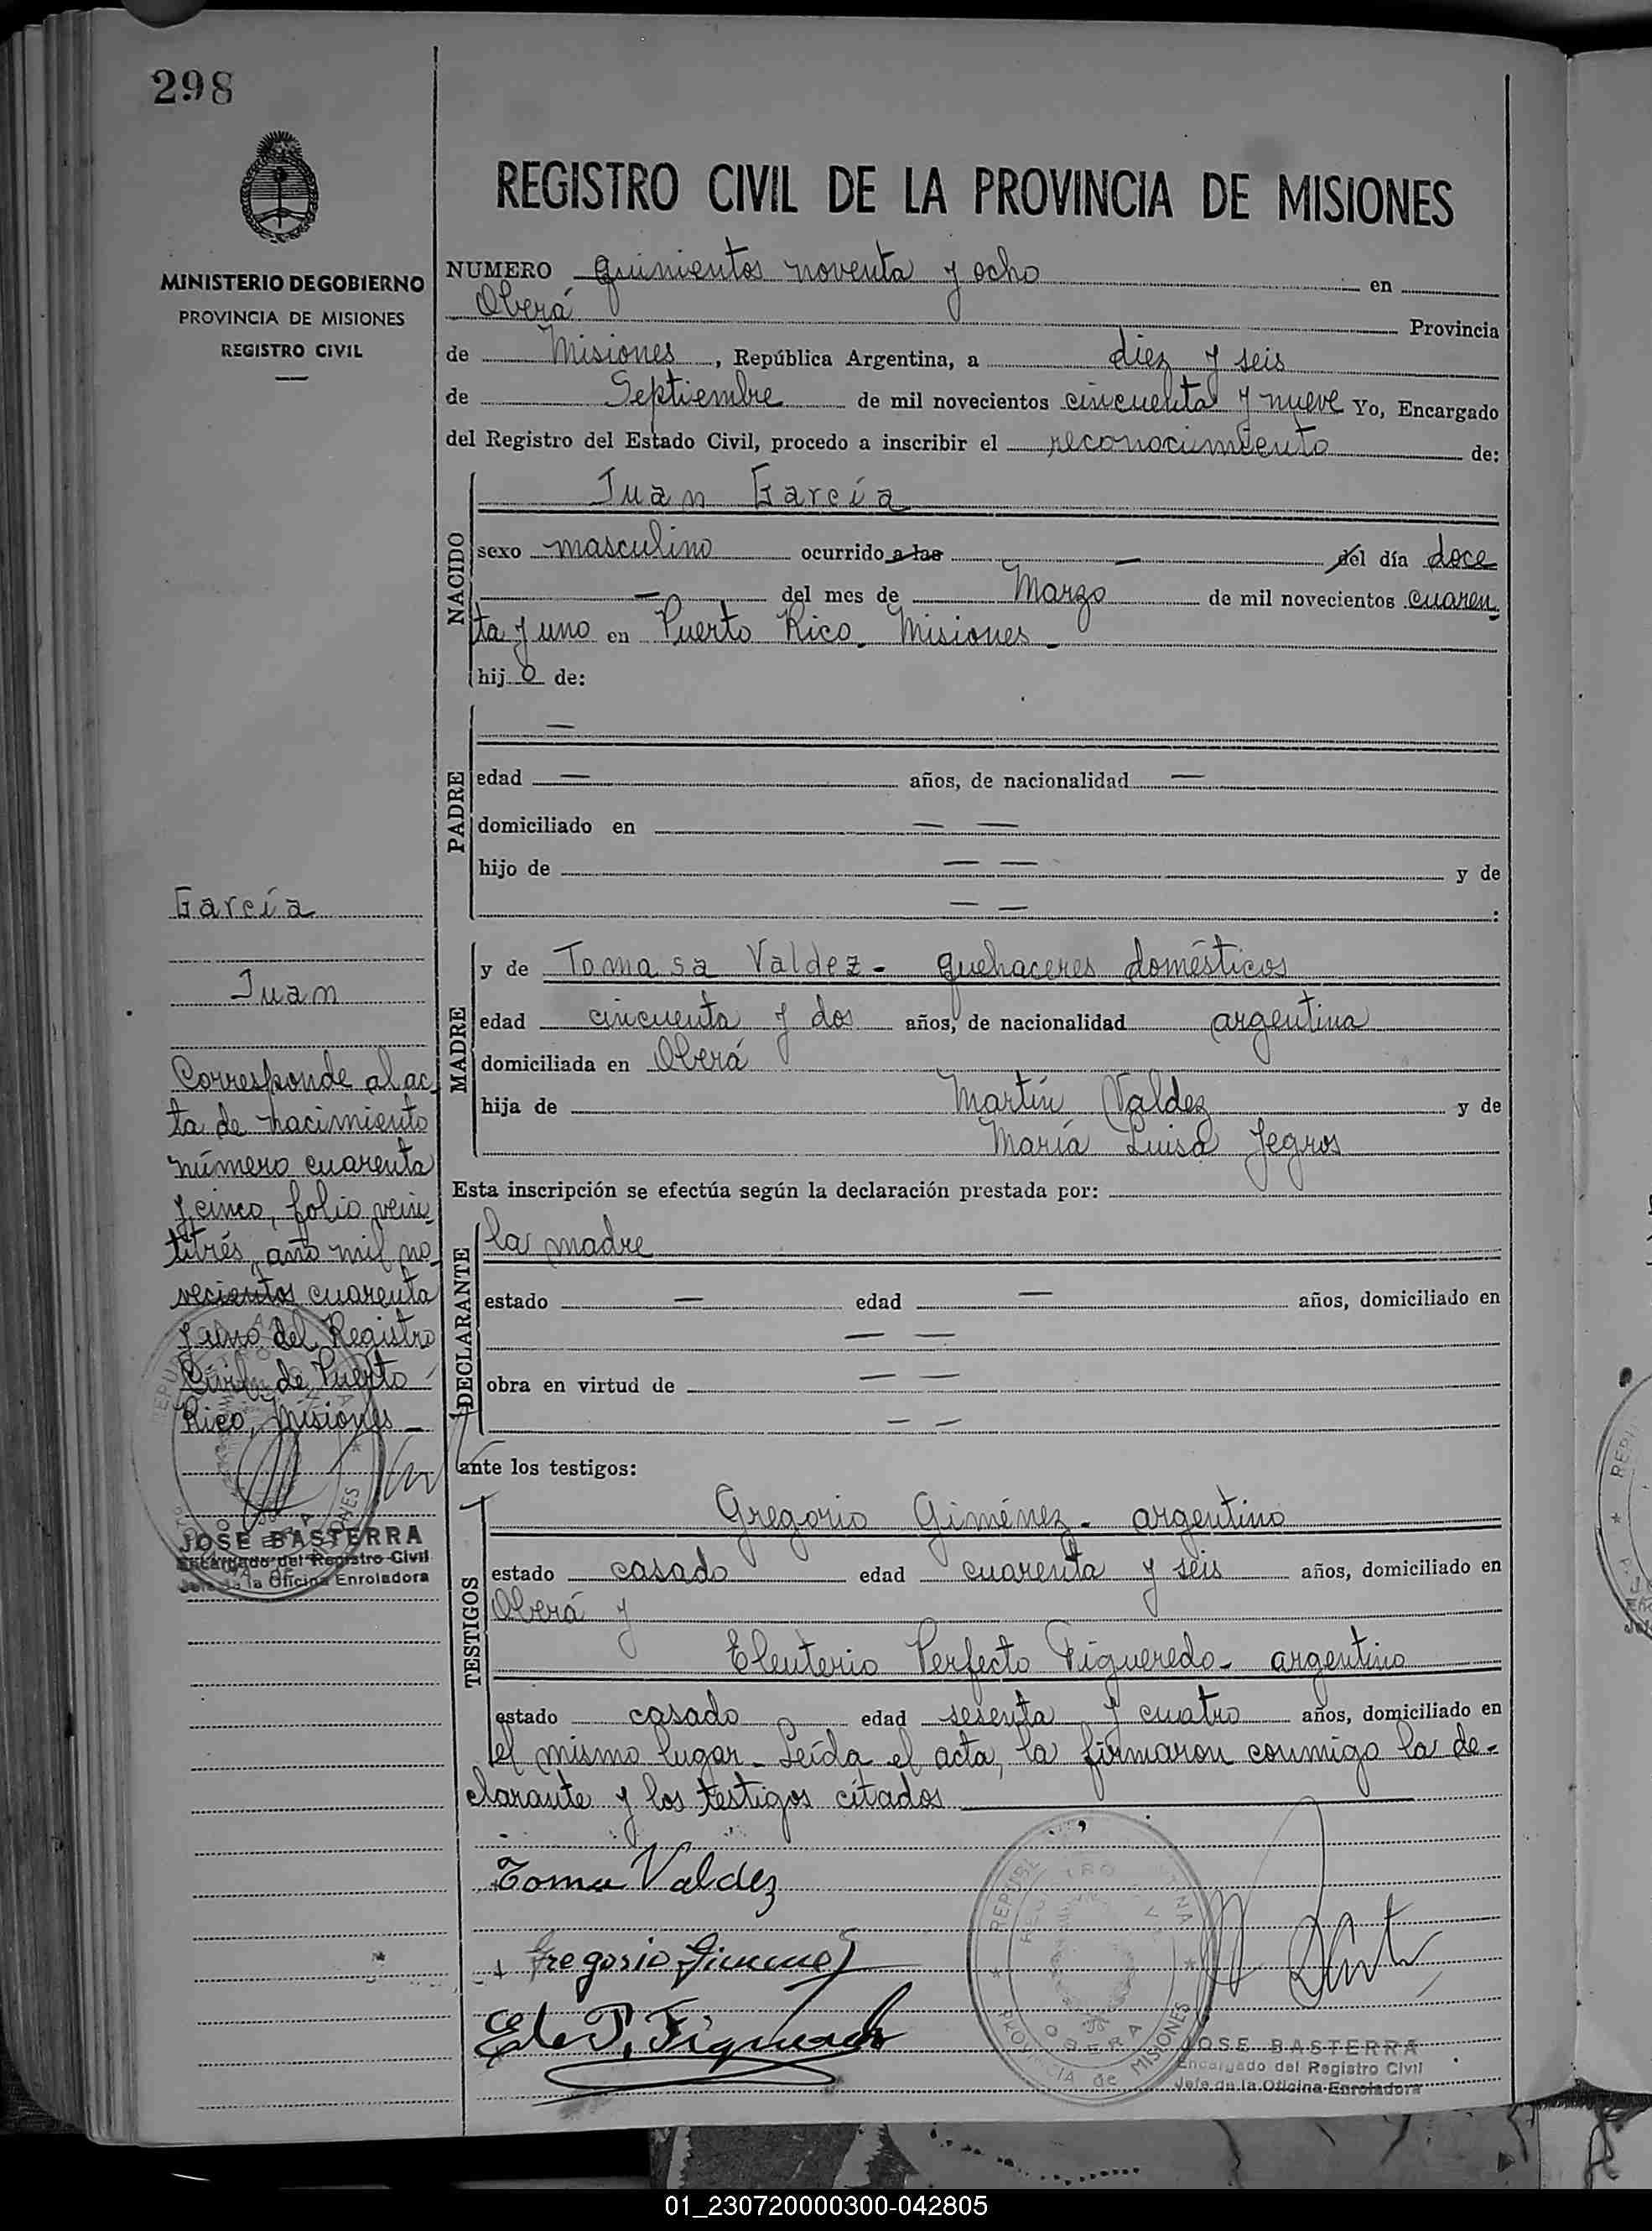 298
MINISTERIO DE GOBIERNO
PROVINCIA DE MISIONES
REGISTRO CIVIL
REGISTRO CIVIL DE LA PROVINCIA DE MISIONES
NUMERO quinientos noventa y ocho en
Oberá Provincia
de Misiones, República Argentina, a diez y seis
de Septiembre de mil novecientos cincuenta y nueve Yo, Encargado
del Registro del Estado Civil, procedo a inscribir el reconocimiento de:
NACIDO
Juan García
sexo masculino ocurrido a las — del día doce
— del mes de Marzo de mil novecientos cuaren-
ta y uno en Puerto Rico - Misiones -
hijo de:
PADRE
—
edad — años, de nacionalidad —
domiciliado en — —
hijo de — — y de
— — :
García
Juan
Corresponde al ac-
ta de nacimiento
número cuarenta
y cinco, folio vein-
titrés, año mil no-
vecientos cuarenta
y uno del Registro
Civil de Puerto
Rico, Misiones -
JOSE BASTERRA
Encargado del Registro Civil
Jefe de la Oficina Enroladora
MADRE
y de Tomasa Valdez - quehaceres domésticos
edad cincuenta y dos años, de nacionalidad argentina
domiciliada en Oberá
hija de Martín Valdez y de
María Luisa Jegros
Esta inscripción se efectúa según la declaración prestada por:
DECLARANTE
la madre
estado — edad — años, domiciliado en
— —
obra en virtud de — —
— —
ante los testigos:
TESTIGOS
Gregorio Giménez - argentino
estado casado edad cuarenta y seis años, domiciliado en
Oberá y
Eleuterio Perfecto Figueredo - argentino
estado casado edad sesenta y cuatro años, domiciliado en
el mismo lugar - Leída el acta, la firmaron conmigo la de-
clarante y los testigos citados
Toma Valdez
Gregorio Gimenez
Ele P. Figueredo
REPUBL
OBERA
PROVINCIA de MISIONES
JOSE BASTERRA
Encargado del Registro Civil
Jefe de la Oficina Enroladora
01_230720000300-042805